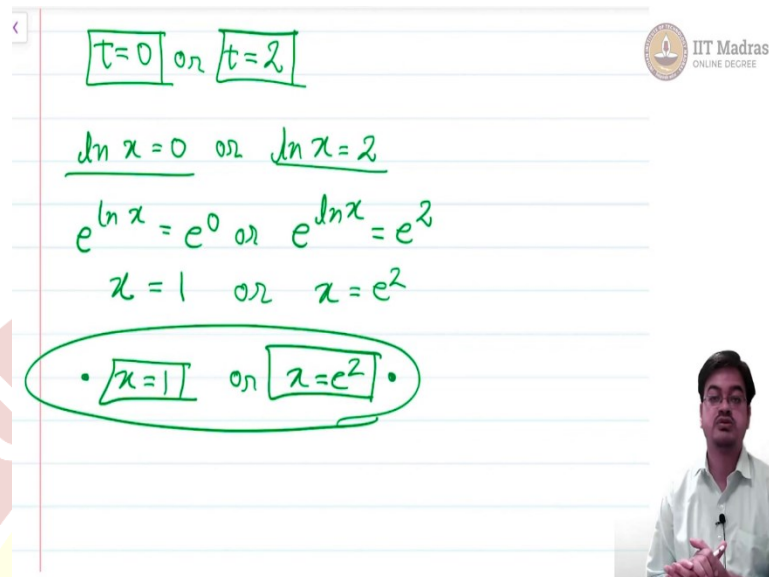 t=0 or t=2
IIT Madras
ONLINE DEGREE
ln x = 0 or ln x = 2
e^{ln x} = e^0 or e^{ln x} = e^2
x = 1 or x = e^2
• x=1 or x=e^2 •